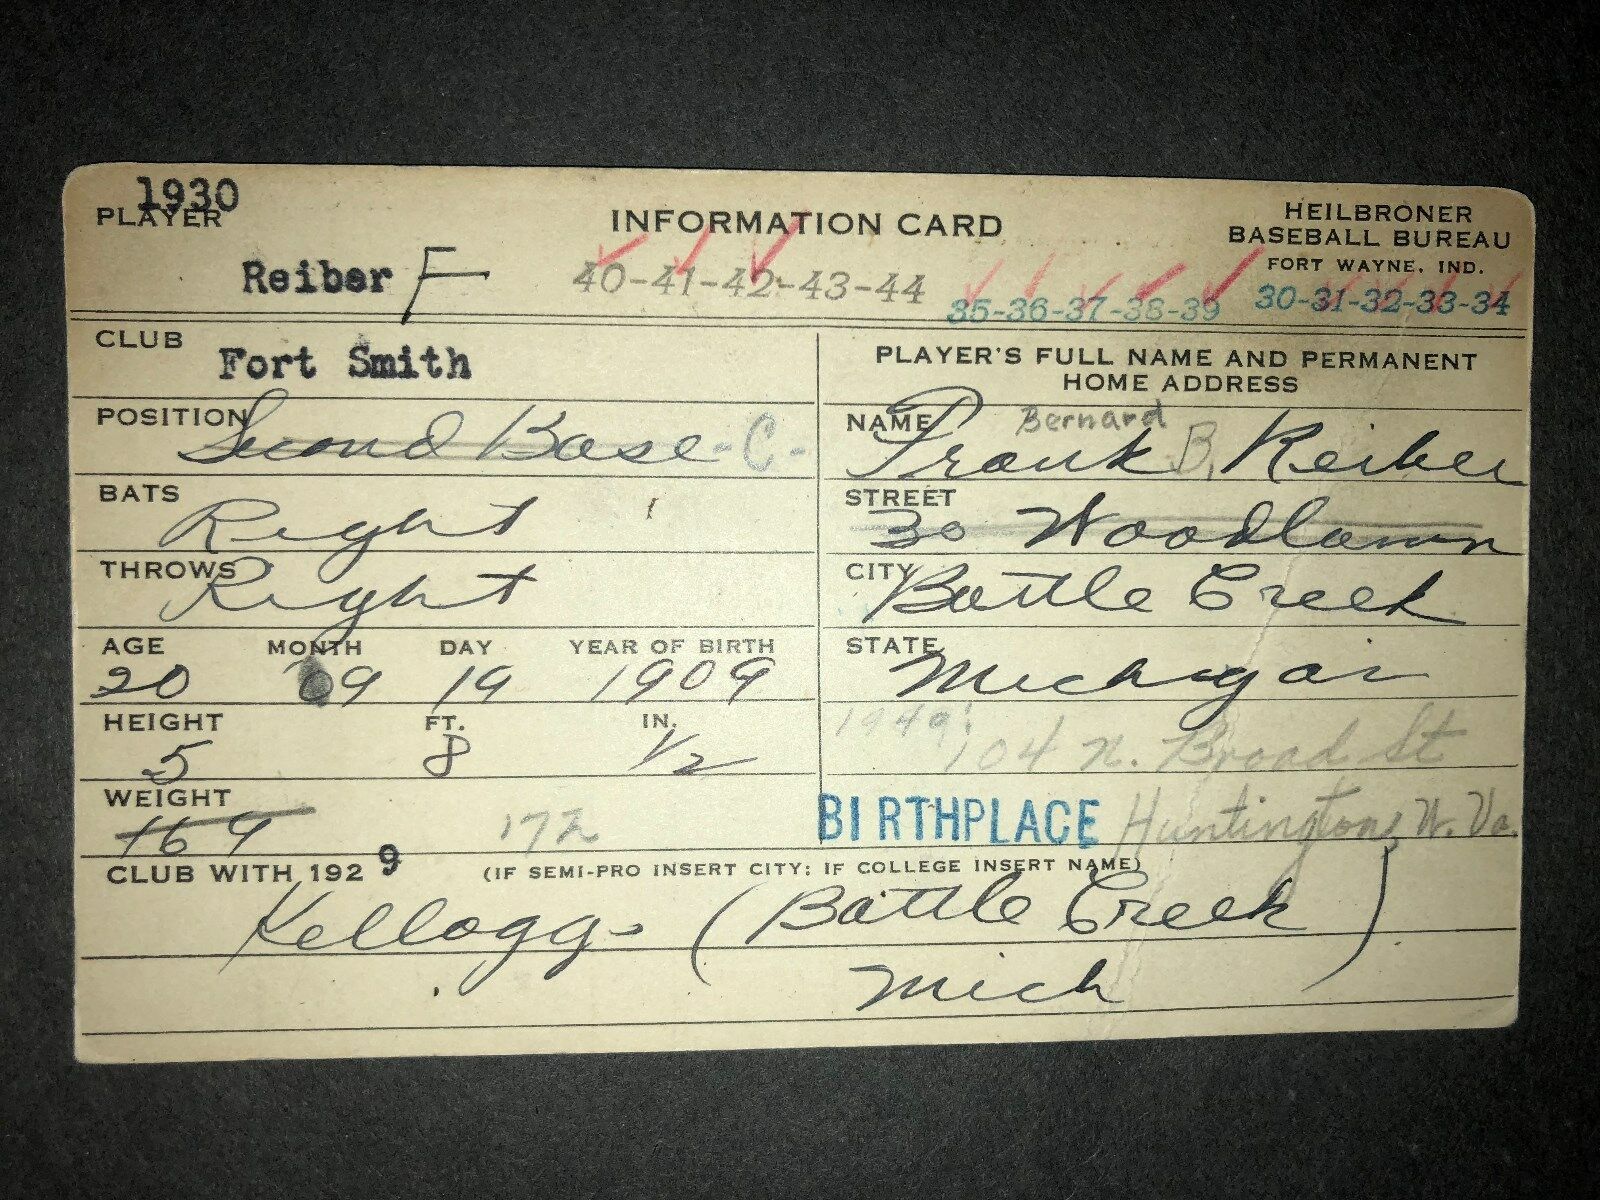 1930
PLAYER
INFORMATION CARD
HEILBRONER
BASEBALL BUREAU
FORT WAYNE, IND.
Reiber F
40-41-42-43-44
35-36-37-38-39
30-31-32-33-34
CLUB
Fort Smith
POSITION
Second Base - C -
BATS
Right
THROWS
Right
AGE MONTH DAY YEAR OF BIRTH
20 09 19 1909
HEIGHT FT. IN.
5 8 1/2
WEIGHT
169 172
PLAYER'S FULL NAME AND PERMANENT
HOME ADDRESS
NAME
Bernard
Frank B. Reiber
STREET
30 Woodlawn
CITY
Battle Creek
STATE
Michigan
1949: 104 N. Broad St
BIRTHPLACE Huntington, W. Va.
CLUB WITH 1929 (IF SEMI-PRO INSERT CITY: IF COLLEGE INSERT NAME)
Kelloggs (Battle Creek)
Mich